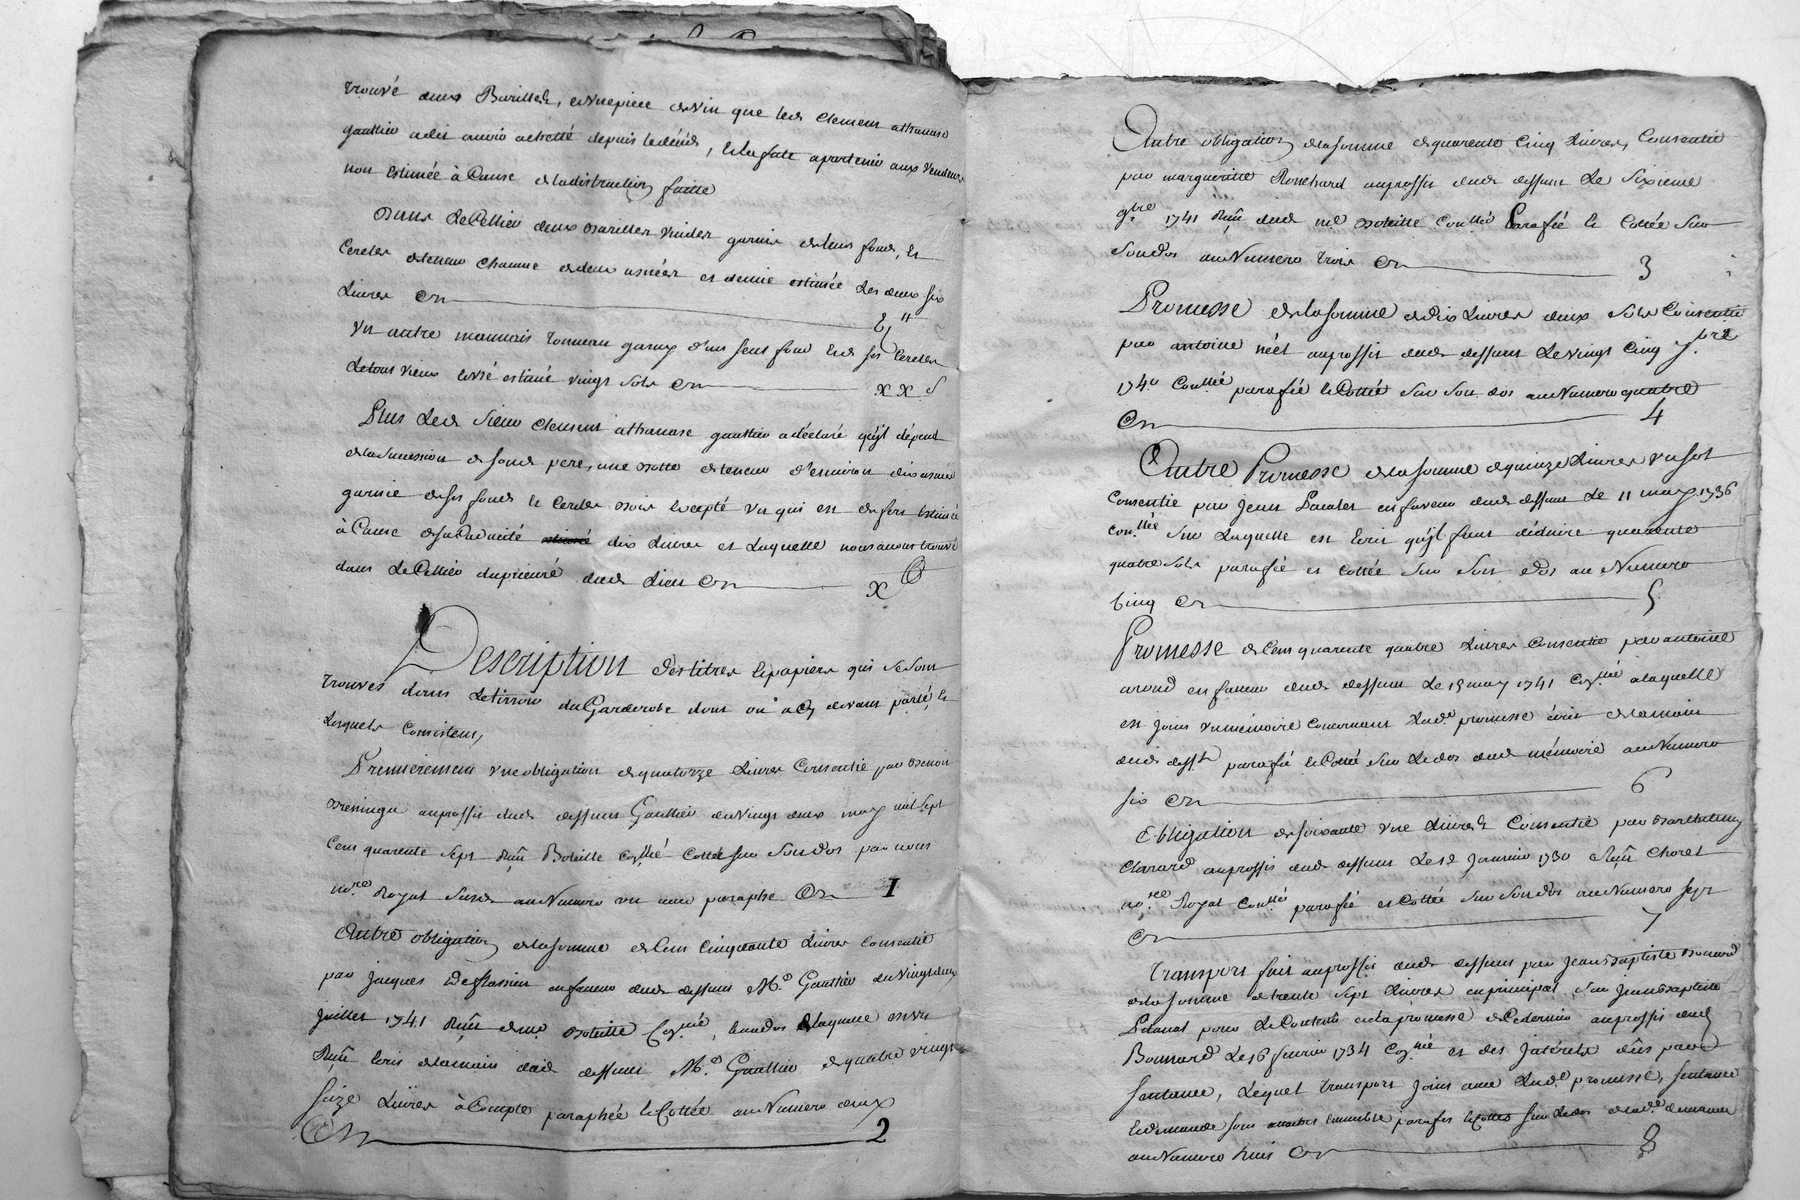 trouvé deux Barilles, et une piece de vin que led. Clement athanase
gauttier a dit avoir achetté depuis le décés, et la futte apartenir aux vendeurs
non Estimée à Cause de la distraction faitte
Dans Le Cellier deux Barilles vuides garnis de leur fond, et
Cercles de teneur Chacune de deux asnées et demie estimée Les deux six
Livres Cy
Un autre mauvais tonneau garny d'un seul fond Et de ses Cercles
Le tout vieux et usé estimé vingt sols Cy xx s
Plus Led. Sieur Clement athanase gauttier a déclaré qu'il dépend
de la succession de fond pere, une Botte de teneur d'environ dix asnées
garnie de ses fonds et Cercles Bois Excepté un qui est de fer Estimée
à Cause de sa dix Livres et Laquelle nous avons trouvé
dans Le Cellier du prieuré dud. Lieu Cy x
Description des titres et papiers qui se sont
trouvés dans Le tiroir du Garderobe dont on a Cy devant parlé, et
Lesquels Consistent,
Premierement Une obligation de quatorze Livres Consentie par Benoit
au proffit dud. dessunt Gauttier du vingt deux may mil sept
Cens quarente sept Reçu Boteille Con.llé Cottée sur Son dos par nous
no.re Royal Susd. au Numero un avec paraphe Cy 1
Autre obligation de la somme de Cent Cinquante Livres Consentie
par Jacques en faveur dud. dessunt M.e Gauttier du vingt deux
Juillet 1741 Reçu dud. Boteille Con.llé, au dos de laquelle est un
Reçu Ecrit de la main dud. dessunt M.e Gauttier de quatre vingt
seize Livres à Compte paraphée et Cottée au Numero deux
Cy 2
Autre obligation de la somme de quarente Cinq Livres, Consentie
par margueritte Bouchard au proffit dud. dessunt Le Sixieme
9.bre 1741 Reçu dud. m.e Boteille Con.llé Parafié et Cottée Sur
Son dos au Numero trois Cy 3
Promesse de la somme de dix Livres deux Sols Consentie
par antoine néel au proffit dud. dessunt Le vingt Cinq 7.bre
1740 Conllée parafié et Cottée Sur Son dos au Numero quatre
Cy 4
Autre Promesse de la somme de quinze Livres un sol
Consentie par Jean en faveur dud. dessunt Le 11 may 1736
con.llée Sur Laquelle est Ecrit qu'il faut déduire quarente
quatre Sols parafié et Cottée Sur Son dos au Numero
Cinq Cy 5
Promesse de Cent quarente quatre Livres Consentie par antoine
aroud en faveur dud. dessunt Le 15 may 1741 Con.llé a laquelle
est joint un mémoire Concernant Lad.e promesse écrit de la main
dud. dess.t parafié et Cotté Sur Le dos dud. mémoire au Numero
six Cy 6
Obligation de soixante une Livres Consentie par Barthelemy
Charard au proffit dud. dessunt Le 12 Janvier 1730 Reçu Choret
no.re Royal Con.llé parafié et Cottée Sur Son dos au Numero sept
Cy 7
Transport fait au proffit dud. dessunt par Jean Baptiste Bonnard
de la somme de trente sept Livres en principal, Sur Jean Baptiste
pour Le Contenu en la promesse de Ce dernier au proffit dud.
Bonnard Le 16 fevrier 1734 Con.llé et des Intérets dûs par
Santance, Lequel transport joint avec Lad.e promesse, santance
et demande sont attachés Ensemble parafés et Cottés Sur Le dos de lad.e demande
au Numero huit Cy 8